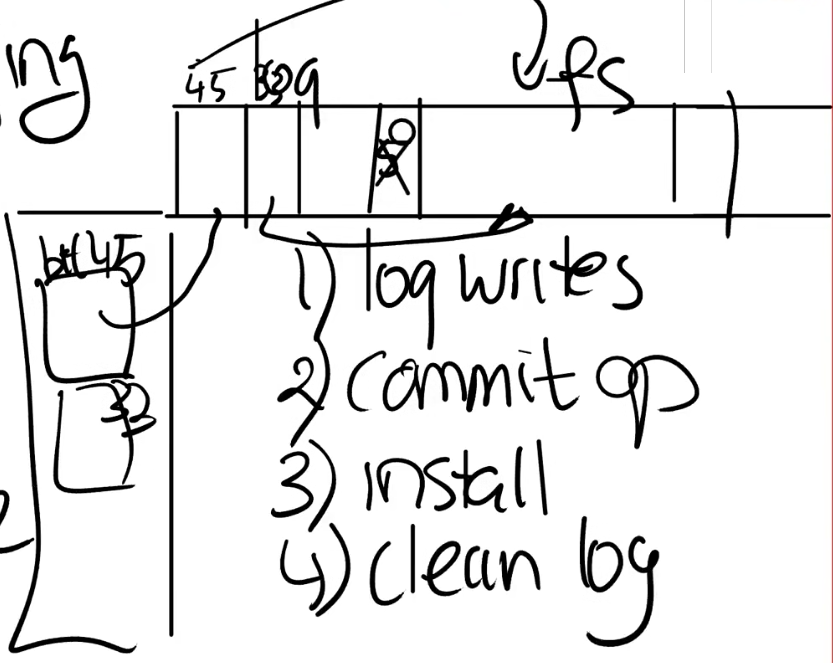 ing
45 fs
bl 45
33
1) log writes
2) commit op
3) install
4) clean log